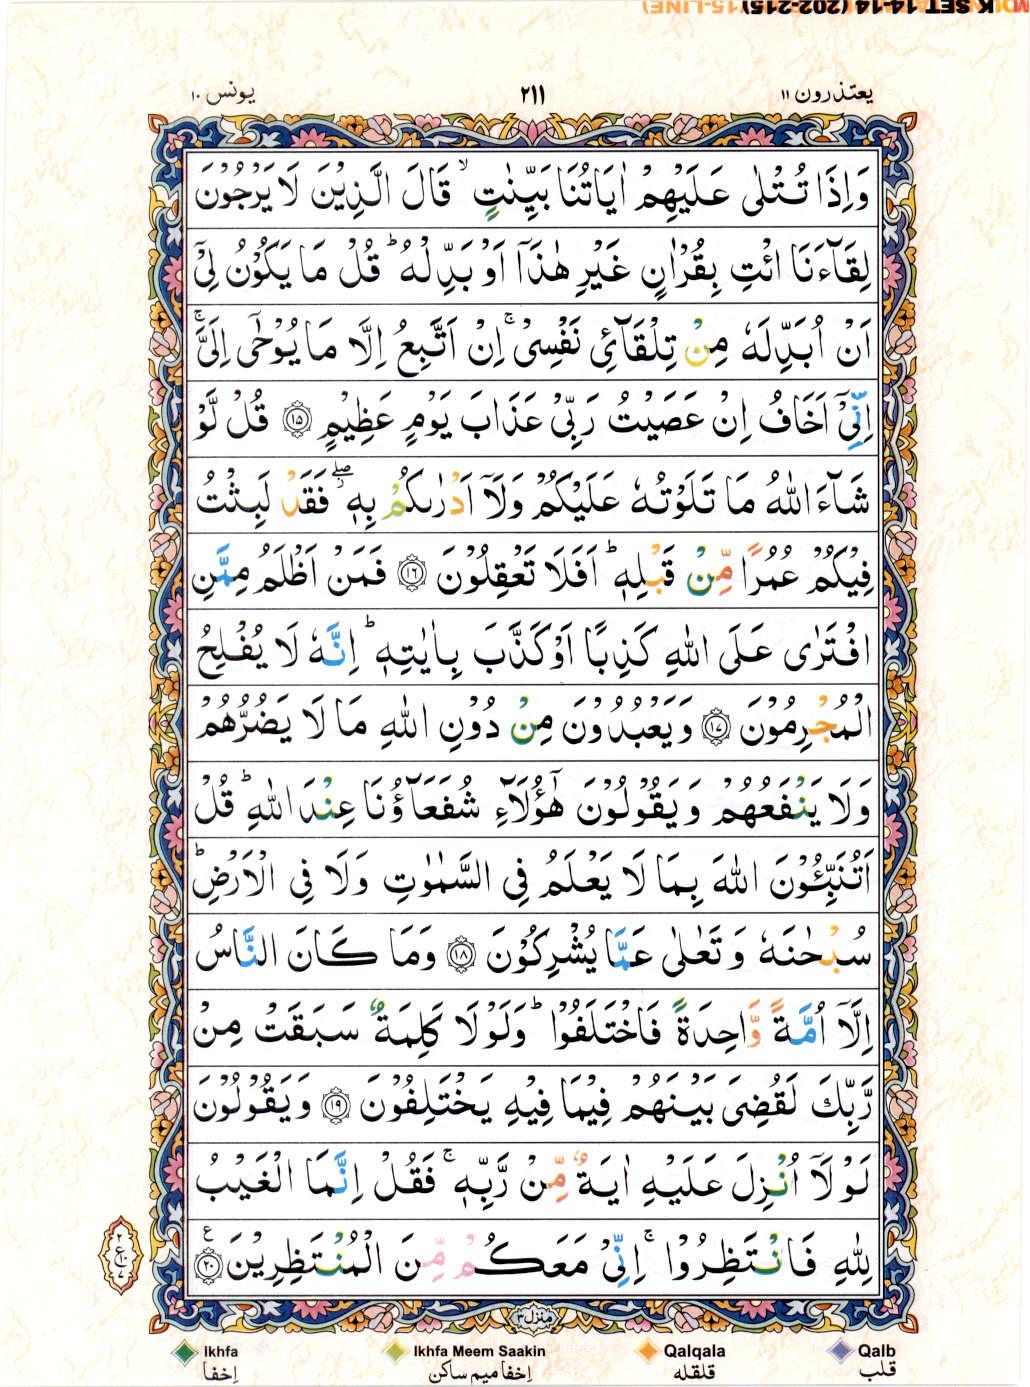 K SET 14-14 (202-215) (15-LINE)
یعتذرون ۱۱
۲۱۱
یونس ۱۰
وَاِذَا تُتْلٰى عَلَيْهِمْ اٰيَاتُنَا بَيِّنٰتٍ ۙ قَالَ الَّذِيْنَ لَا يَرْجُوْنَ
لِقَآءَنَا ائْتِ بِقُرْاٰنٍ غَيْرِ هٰذَآ اَوْ بَدِّلْهُ ؕ قُلْ مَا يَكُوْنُ لِيْٓ
اَنْ اُبَدِّلَهٗ مِنْ تِلْقَآئِ نَفْسِيْ ۚ اِنْ اَتَّبِعُ اِلَّا مَا يُوْحٰٓى اِلَيَّ ۚ
اِنِّيْٓ اَخَافُ اِنْ عَصَيْتُ رَبِّيْ عَذَابَ يَوْمٍ عَظِيْمٍ ۝۱۵ قُلْ لَّوْ
شَآءَ اللّٰهُ مَا تَلَوْتُهٗ عَلَيْكُمْ وَلَآ اَدْرٰىكُمْ بِهٖ ۖ فَقَدْ لَبِثْتُ
فِيْكُمْ عُمُرًا مِّنْ قَبْلِهٖ ؕ اَفَلَا تَعْقِلُوْنَ ۝۱۶ فَمَنْ اَظْلَمُ مِمَّنِ
افْتَرٰى عَلَى اللّٰهِ كَذِبًا اَوْ كَذَّبَ بِاٰيٰتِهٖ ؕ اِنَّهٗ لَا يُفْلِحُ
الْمُجْرِمُوْنَ ۝۱۷ وَيَعْبُدُوْنَ مِنْ دُوْنِ اللّٰهِ مَا لَا يَضُرُّهُمْ
وَلَا يَنْفَعُهُمْ وَيَقُوْلُوْنَ هٰٓؤُلَآءِ شُفَعَآؤُنَا عِنْدَ اللّٰهِ ؕ قُلْ
اَتُنَبِّـُٔوْنَ اللّٰهَ بِمَا لَا يَعْلَمُ فِي السَّمٰوٰتِ وَلَا فِي الْاَرْضِ ؕ
سُبْحٰنَهٗ وَتَعٰلٰى عَمَّا يُشْرِكُوْنَ ۝۱۸ وَمَا كَانَ النَّاسُ
اِلَّآ اُمَّةً وَّاحِدَةً فَاخْتَلَفُوْا ؕ وَلَوْلَا كَلِمَةٌ سَبَقَتْ مِنْ
رَّبِّكَ لَقُضِيَ بَيْنَهُمْ فِيْمَا فِيْهِ يَخْتَلِفُوْنَ ۝۱۹ وَيَقُوْلُوْنَ
لَوْلَآ اُنْزِلَ عَلَيْهِ اٰيَةٌ مِّنْ رَّبِّهٖ ۚ فَقُلْ اِنَّمَا الْغَيْبُ
لِلّٰهِ فَانْتَظِرُوْا ۚ اِنِّيْ مَعَكُمْ مِّنَ الْمُنْتَظِرِيْنَ ۝۲۰ ع
۲
ع
۱۰
۷
منزل ۳
Ikhfa
Ikhfa Meem Saakin
Qalqala
Qalb
اِخفا
اِخفا میم ساکن
قلقلہ
قلب